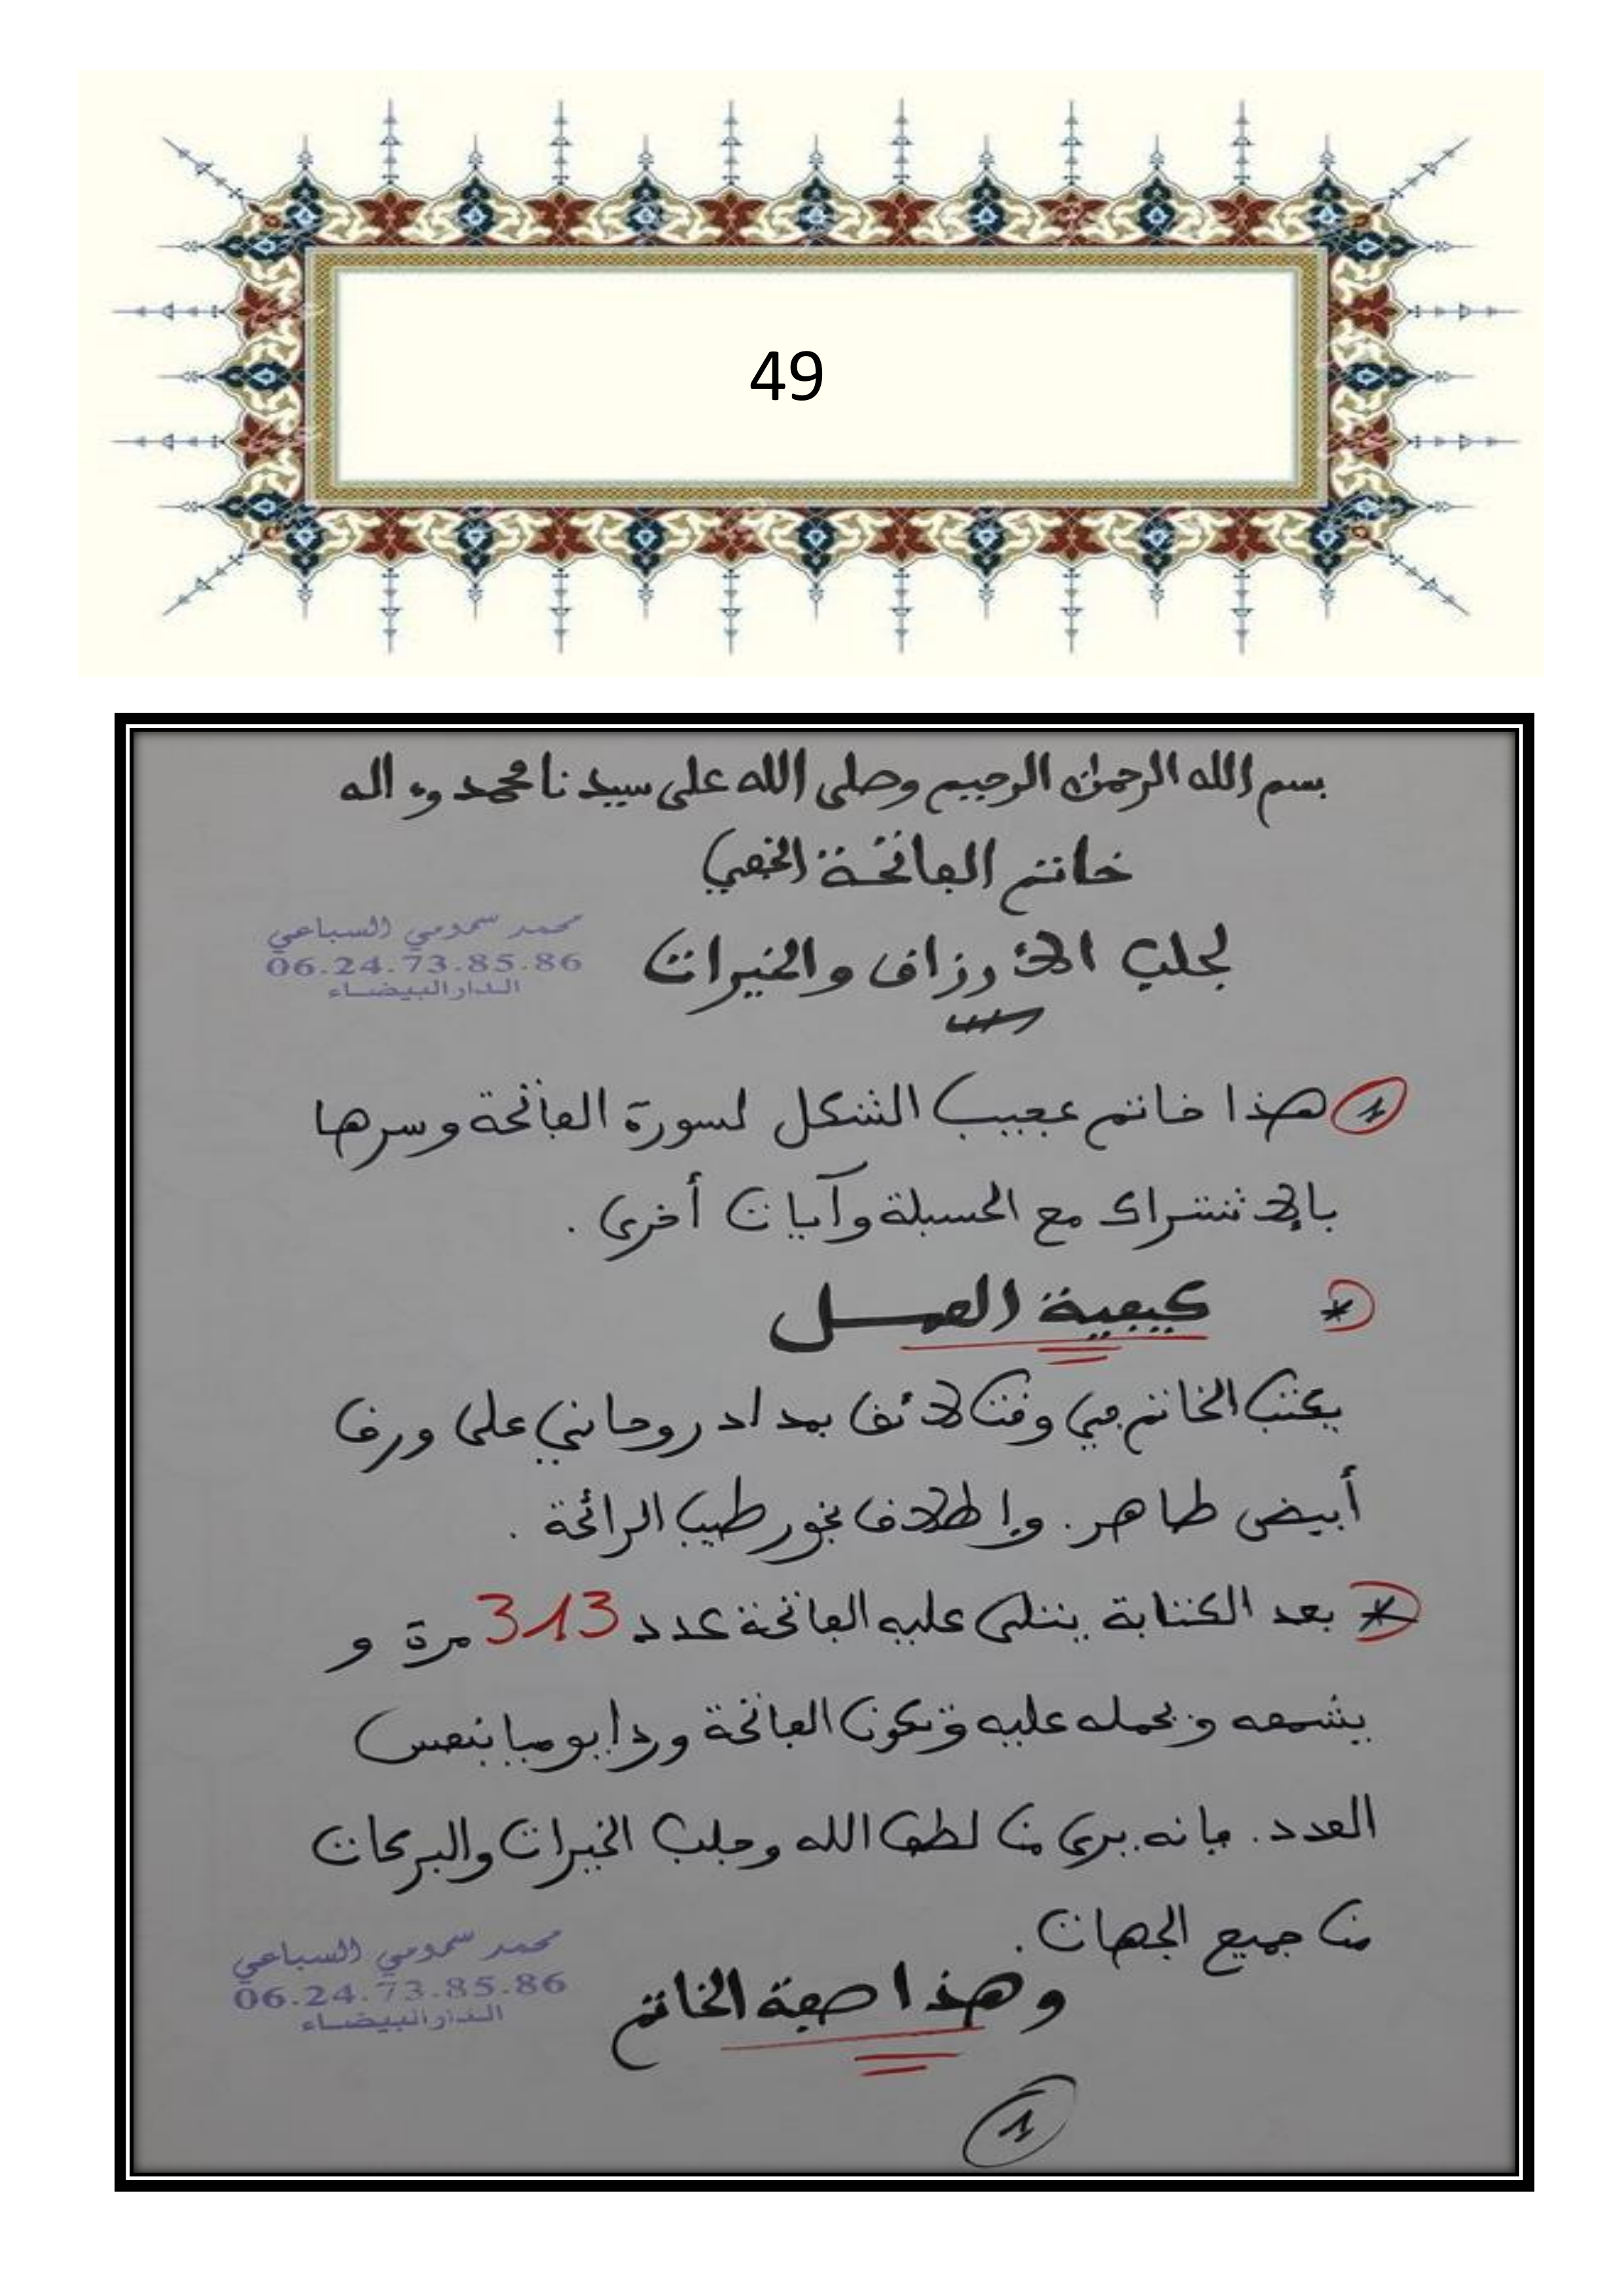 49
بسم الله الرحمن الرحيم وصلى الله على سيدنا محمد وءاله
خاتم الفاتحة الخفي
لجلب الأرزاق والخيرات
محمد سمومي السباعي
06.24.73.85.86
الدار البيضاء
1 هذا خاتم عجيب الشكل لسورة الفاتحة وسرها
بالإشتراك مع الحسبلة وآيات أخرى.
* كيفية العمل
يكتب الخاتم في وقت لائق بمداد روحاني على ورق
أبيض طاهر. وإطلاق بخور طيب الرائحة.
* بعد الكتابة يتلى عليه الفاتحة عدد 313 مرة و
يشمعه ويحمله عليه وتكون الفاتحة وردا يوميا بنفس
العدد. فإنه يرى من لطف الله وجلب الخيرات والبركات
من جميع الجهات.
وهذا صفة الخاتم
محمد سمومي السباعي
06.24.73.85.86
الدار البيضاء
1